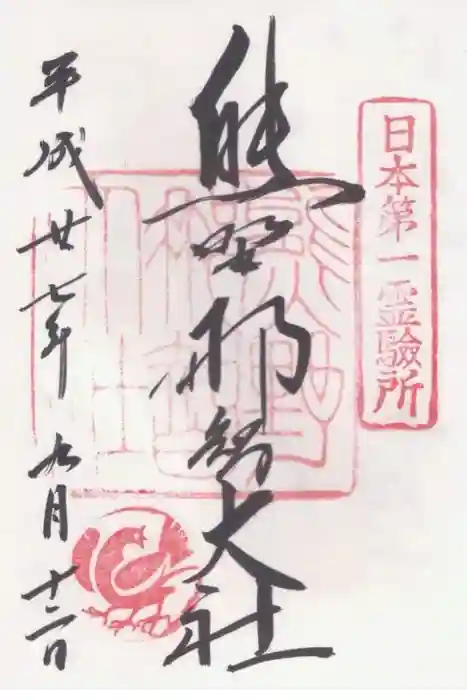 日本第一霊驗所
熊野那智大社
平成廿七年九月十二日